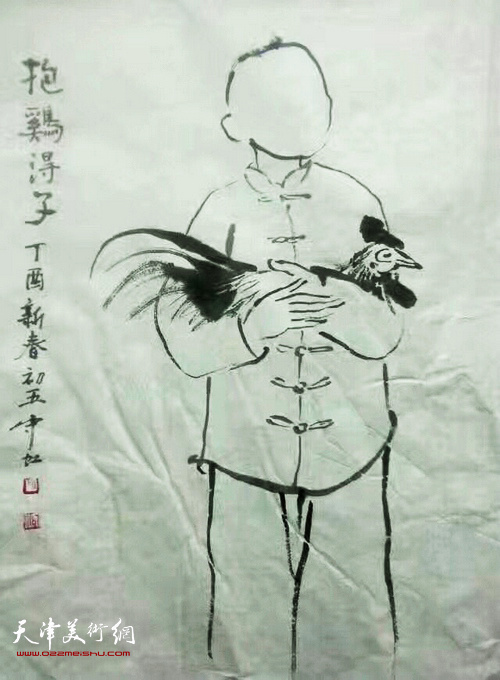 抱鷄得子
丁酉新春初五守虹
天津美術網
www.022meishu.com